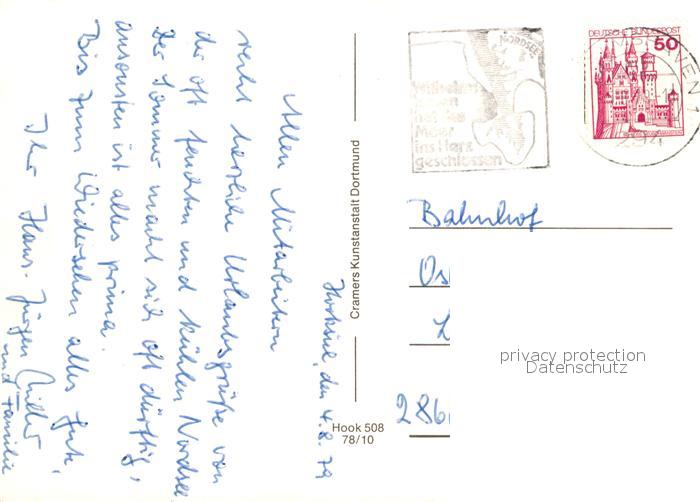 Hooksiel, den 4.8.79
Allen Mitarbeitern
recht herzliche Urlaubsgrüße von
der oft feuchten und kühlen Nordsee
Der Sommer macht sich oft dürftig,
ansonsten ist alles prima.
Bis zum Wiedersehen alles Gute,
Ihr Hans-Jürgen
und Familie
Cramers Kunstanstalt Dortmund
Hook 508
78/10
NORDSEE
Wilhelms
haven
hat das
Meer
ins Herz
geschlossen
DEUTSCHE BUNDESPOST
50
294
Bahnhof
Os
286
privacy protection
Datenschutz